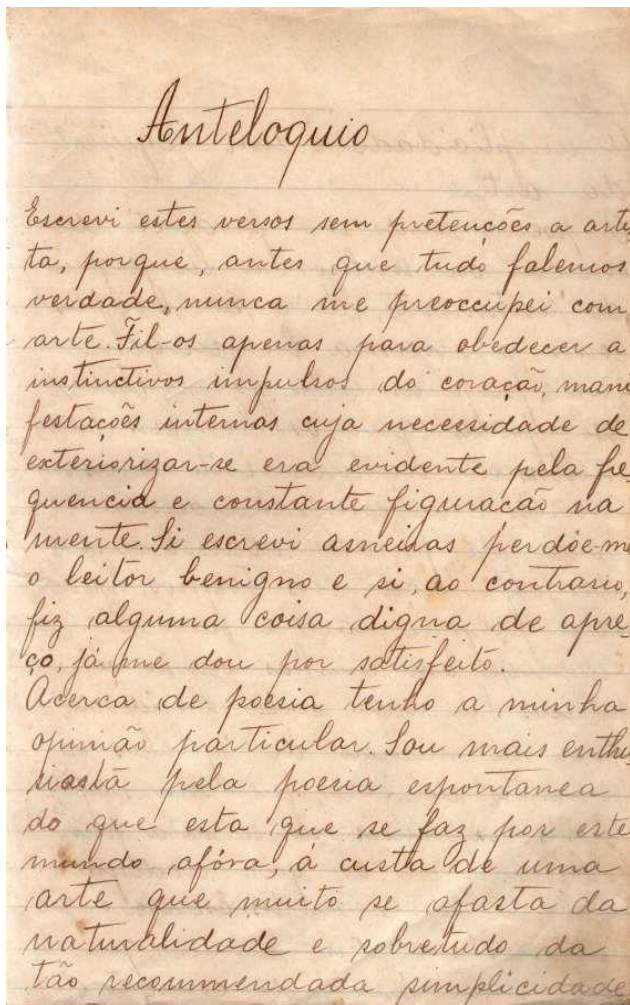 Anteloquio
Escrevi estes versos sem pretenções a artis
ta, porque, antes que tudo falemos
verdade, nunca me preoccupei com
arte. Fil-os apenas para obedecer a
instinctivos impulsos do coração, mani
festações internas cuja necessidade de
exteriorizar-se era evidente pela fre-
quencia e constante figuração na
mente. Si escrevi asneiras perdôe-me
o leitor benigno e si, ao contrario,
fiz alguma coisa digna de apre-
ço, já me dou por satisfeito.
Acerca de poesia tenho a minha
opinião particular. Sou mais enthu
siasta pela poesia espontanea
do que esta que se faz por este
mundo afóra, á custa de uma
arte que muito se afasta da
naturalidade e sobretudo da
tão recommendada simplicidade